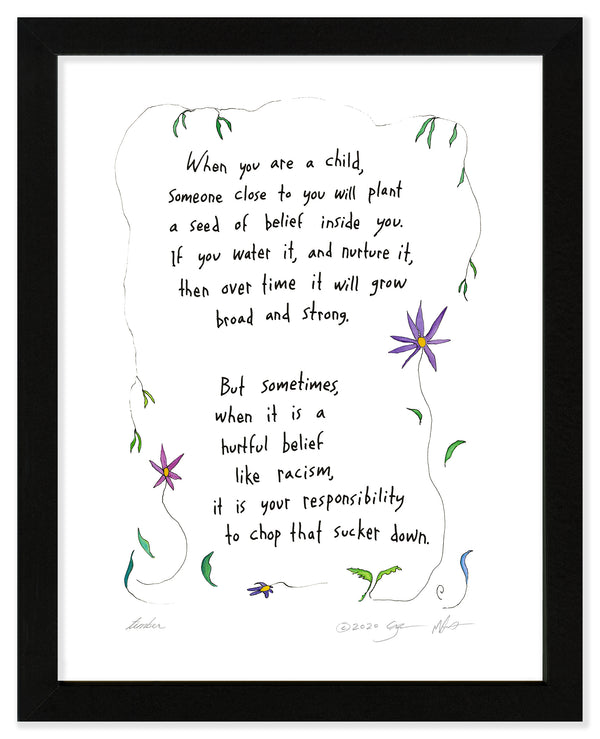 When you are a child,
someone close to you will plant
a seed of belief inside you.
If you water it, and nurture it,
then over time it will grow
broad and strong.
But sometimes,
when it is a
hurtful belief
like racism,
it is your responsibility
to chop that sucker down.
timber
©2020